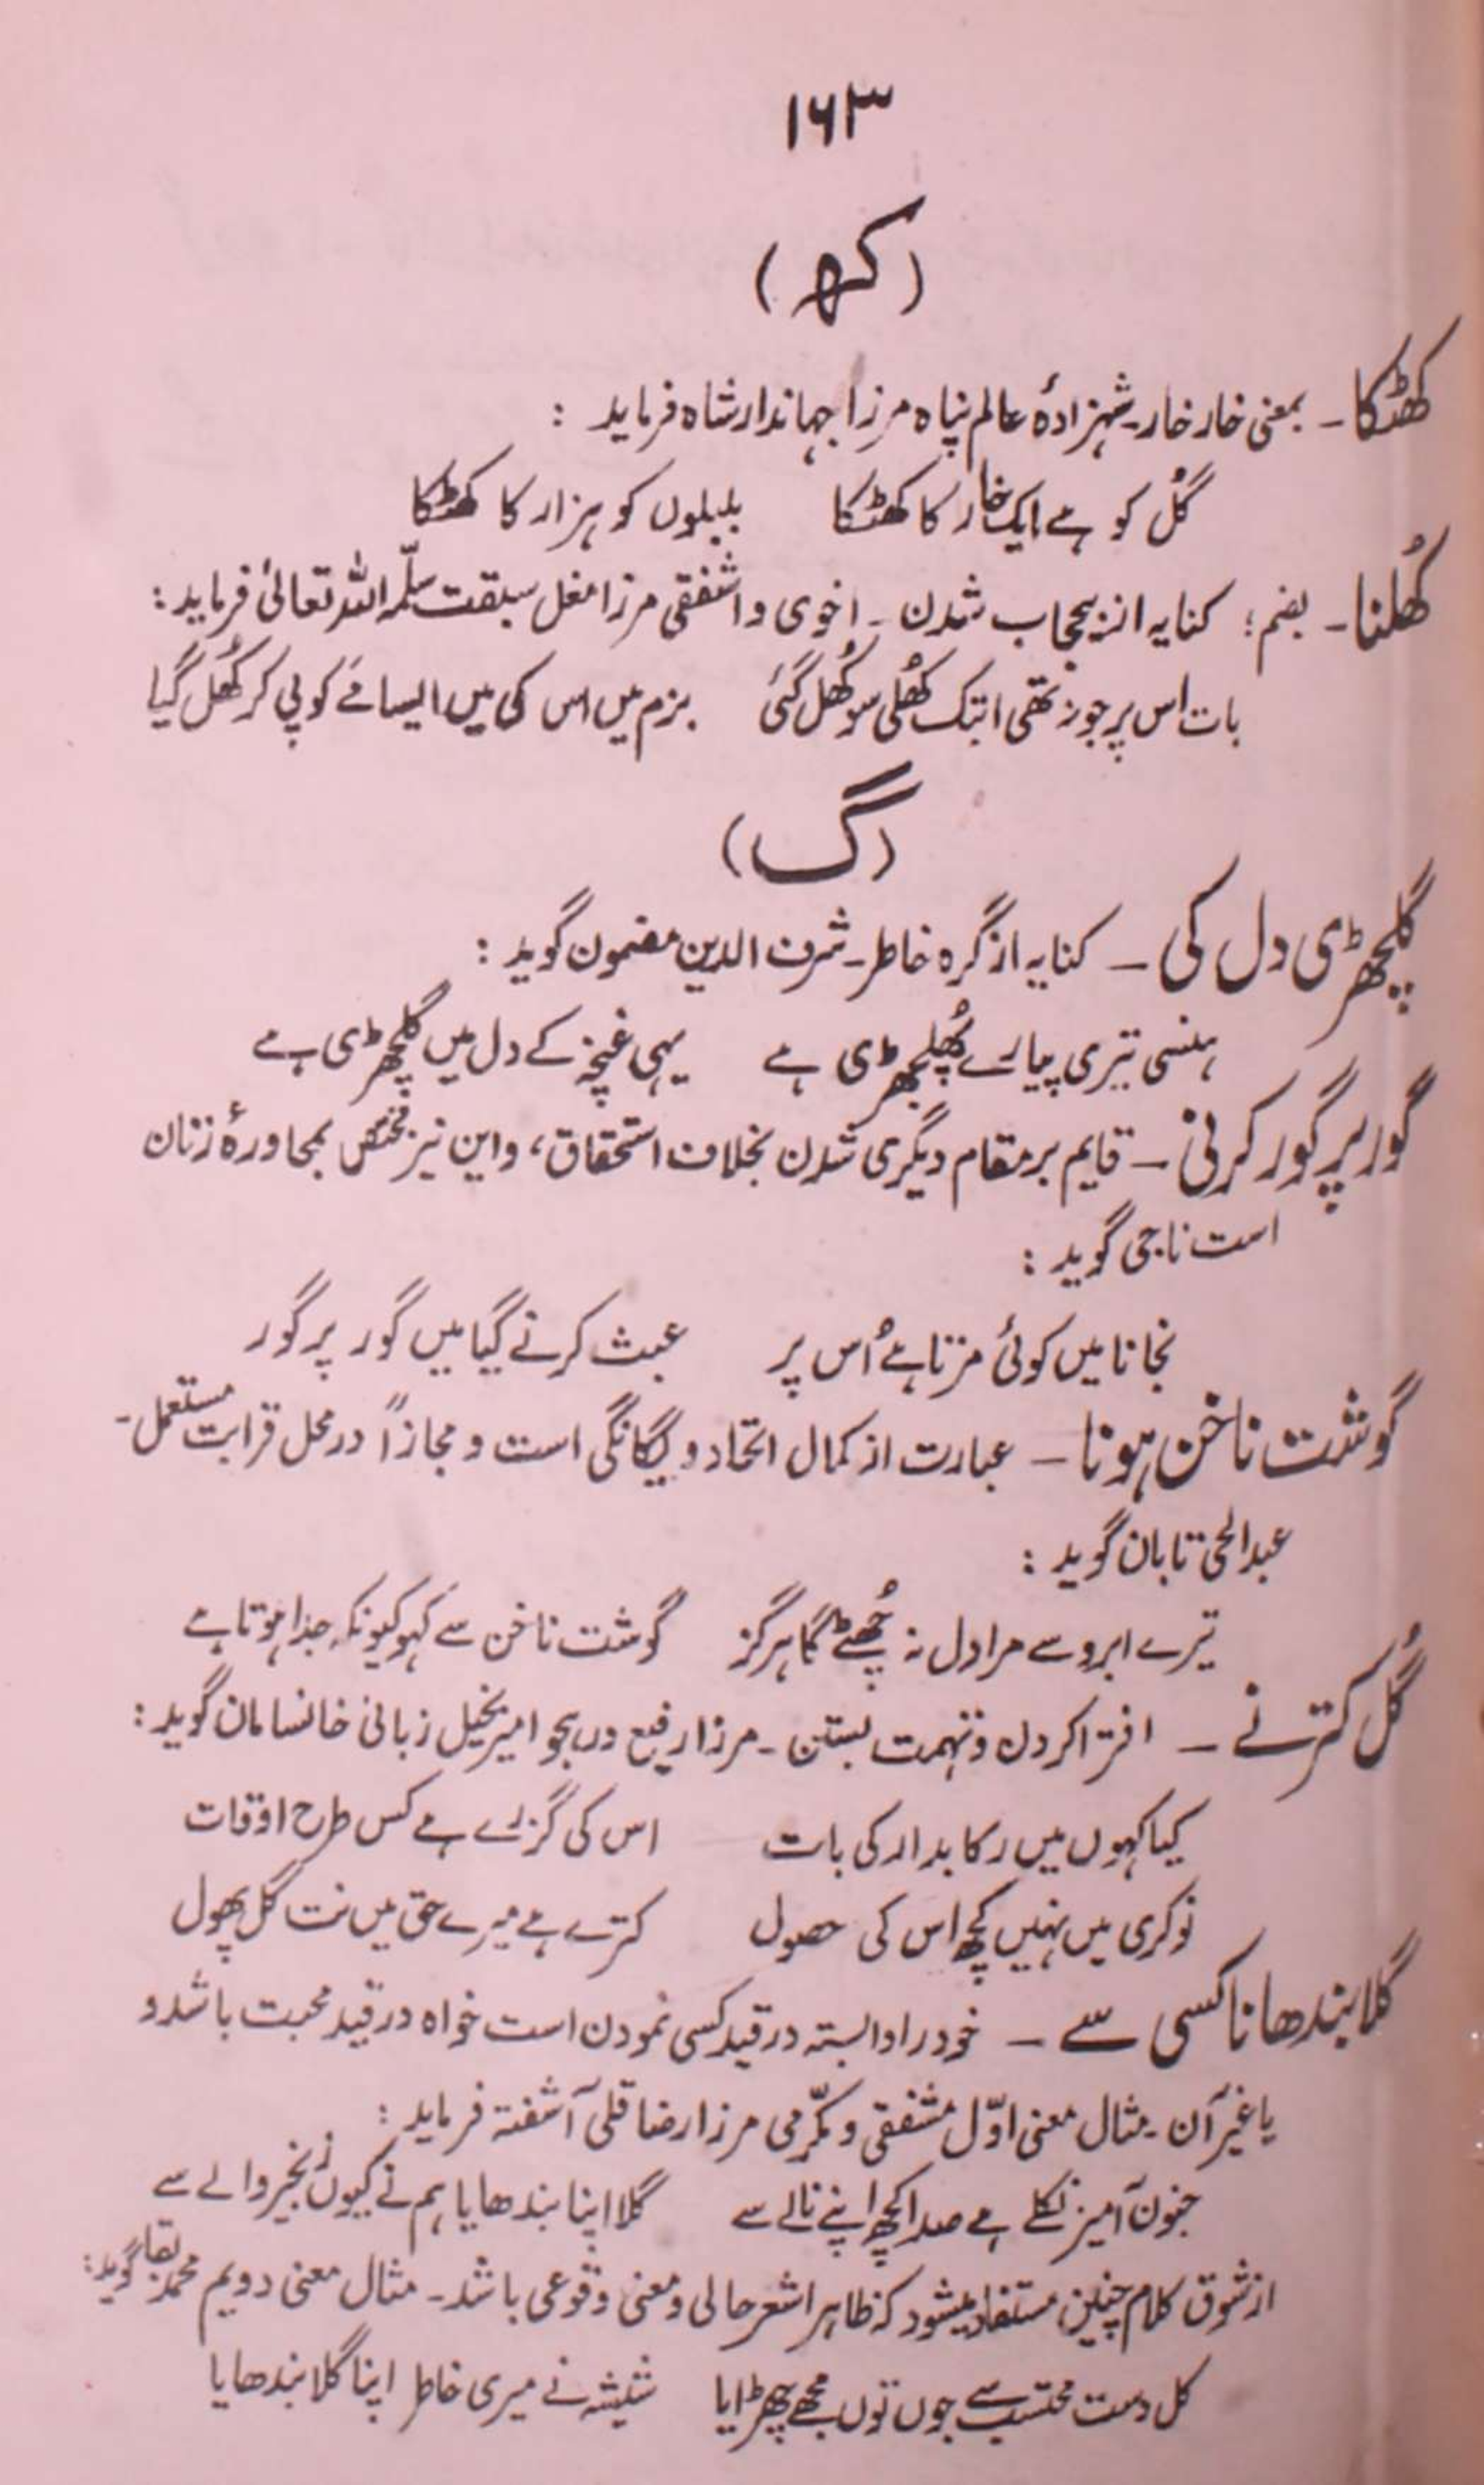 ۱۶۳
(کھ)
کھٹکا ۔ بمعنی خار خار۔ شہزادۂ عالم پناہ مرزا جہاندار شاہ فرماید :
گُل کو ہے ایک خار کا کھٹکا بلبلوں کو ہزار کا کھٹکا
کُھلنا ۔ بضم؛ کنایہ از بیحجاب شدن ۔ اخوی و اشفقی مرزا مغل سبقت سلّمہ اللہ تعالیٰ فرماید :
بات اس پر جو نہ تھی ابتک کُھلی سو کُھل گئی بزم میں اس کی میں ایسا مَے کو پی کر کُھل گیا
(گ)
گلچھڑی دل کی ۔ کنایہ از گرہ خاطر۔ شرف الدین مضمون گوید :
ہنسی تیری پیارے پُھلجھڑی ہے یہی غنچہ کے دل میں گلچھڑی ہے
گور پر گور کرنی ۔ قایم بر مقام دیگری شدن بخلاف استحقاق، و این نیز مختص بمحاورۂ زنان
است ناجی گوید :
نجانا میں کوئی مرتا ہے اُس پر عبث کرنے گیا میں گور پر گور
گوشت ناخن ہونا ۔ عبارت از کمال اتحاد و یگانگی است و مجازاً در محل قرابت مستعمل۔
عبدالحی تابان گوید :
تیرے ابرو سے مرا دل نہ چُھٹے گا ہرگز گوشت ناخن سے کہو کیونکہ جدا ہوتا ہے
گُل کترنے ۔ افترا کردن و تہمت بستن ۔ مرزا رفیع در ہجو امیر بخیل زبانی خانسامان گوید :
کیا کہوں میں رکابدار کی بات اس کی گزرے ہے کس طرح اوقات
نوکری میں نہیں کچھ اس کی حصول کترے ہے میرے حق میں نت گل پھول
گلا بندھانا کسی سے ۔ خود را وابستہ در قید کسی نمودن است خواہ در قید محبت باشد و
یا غیر آن ۔ مثال معنی اوّل مشفقی و مکرّمی مرزا رضا قلی آشفتہ فرماید :
جنون آمیز نکلے ہے صدا کچھ اپنے نالے سے گلا اپنا بندھایا ہم نے کیوں زنجیر والے سے
از شوق کلام چنین مستفاد میشود کہ ظاہرا شعر حالی و معنی وقوعی باشد ۔ مثال معنی دویم محمد بقا گوید :
کل دست محتسب سے جوں توں مجھے چھڑایا شیشہ نے میری خاطر اپنا گلا بندھایا